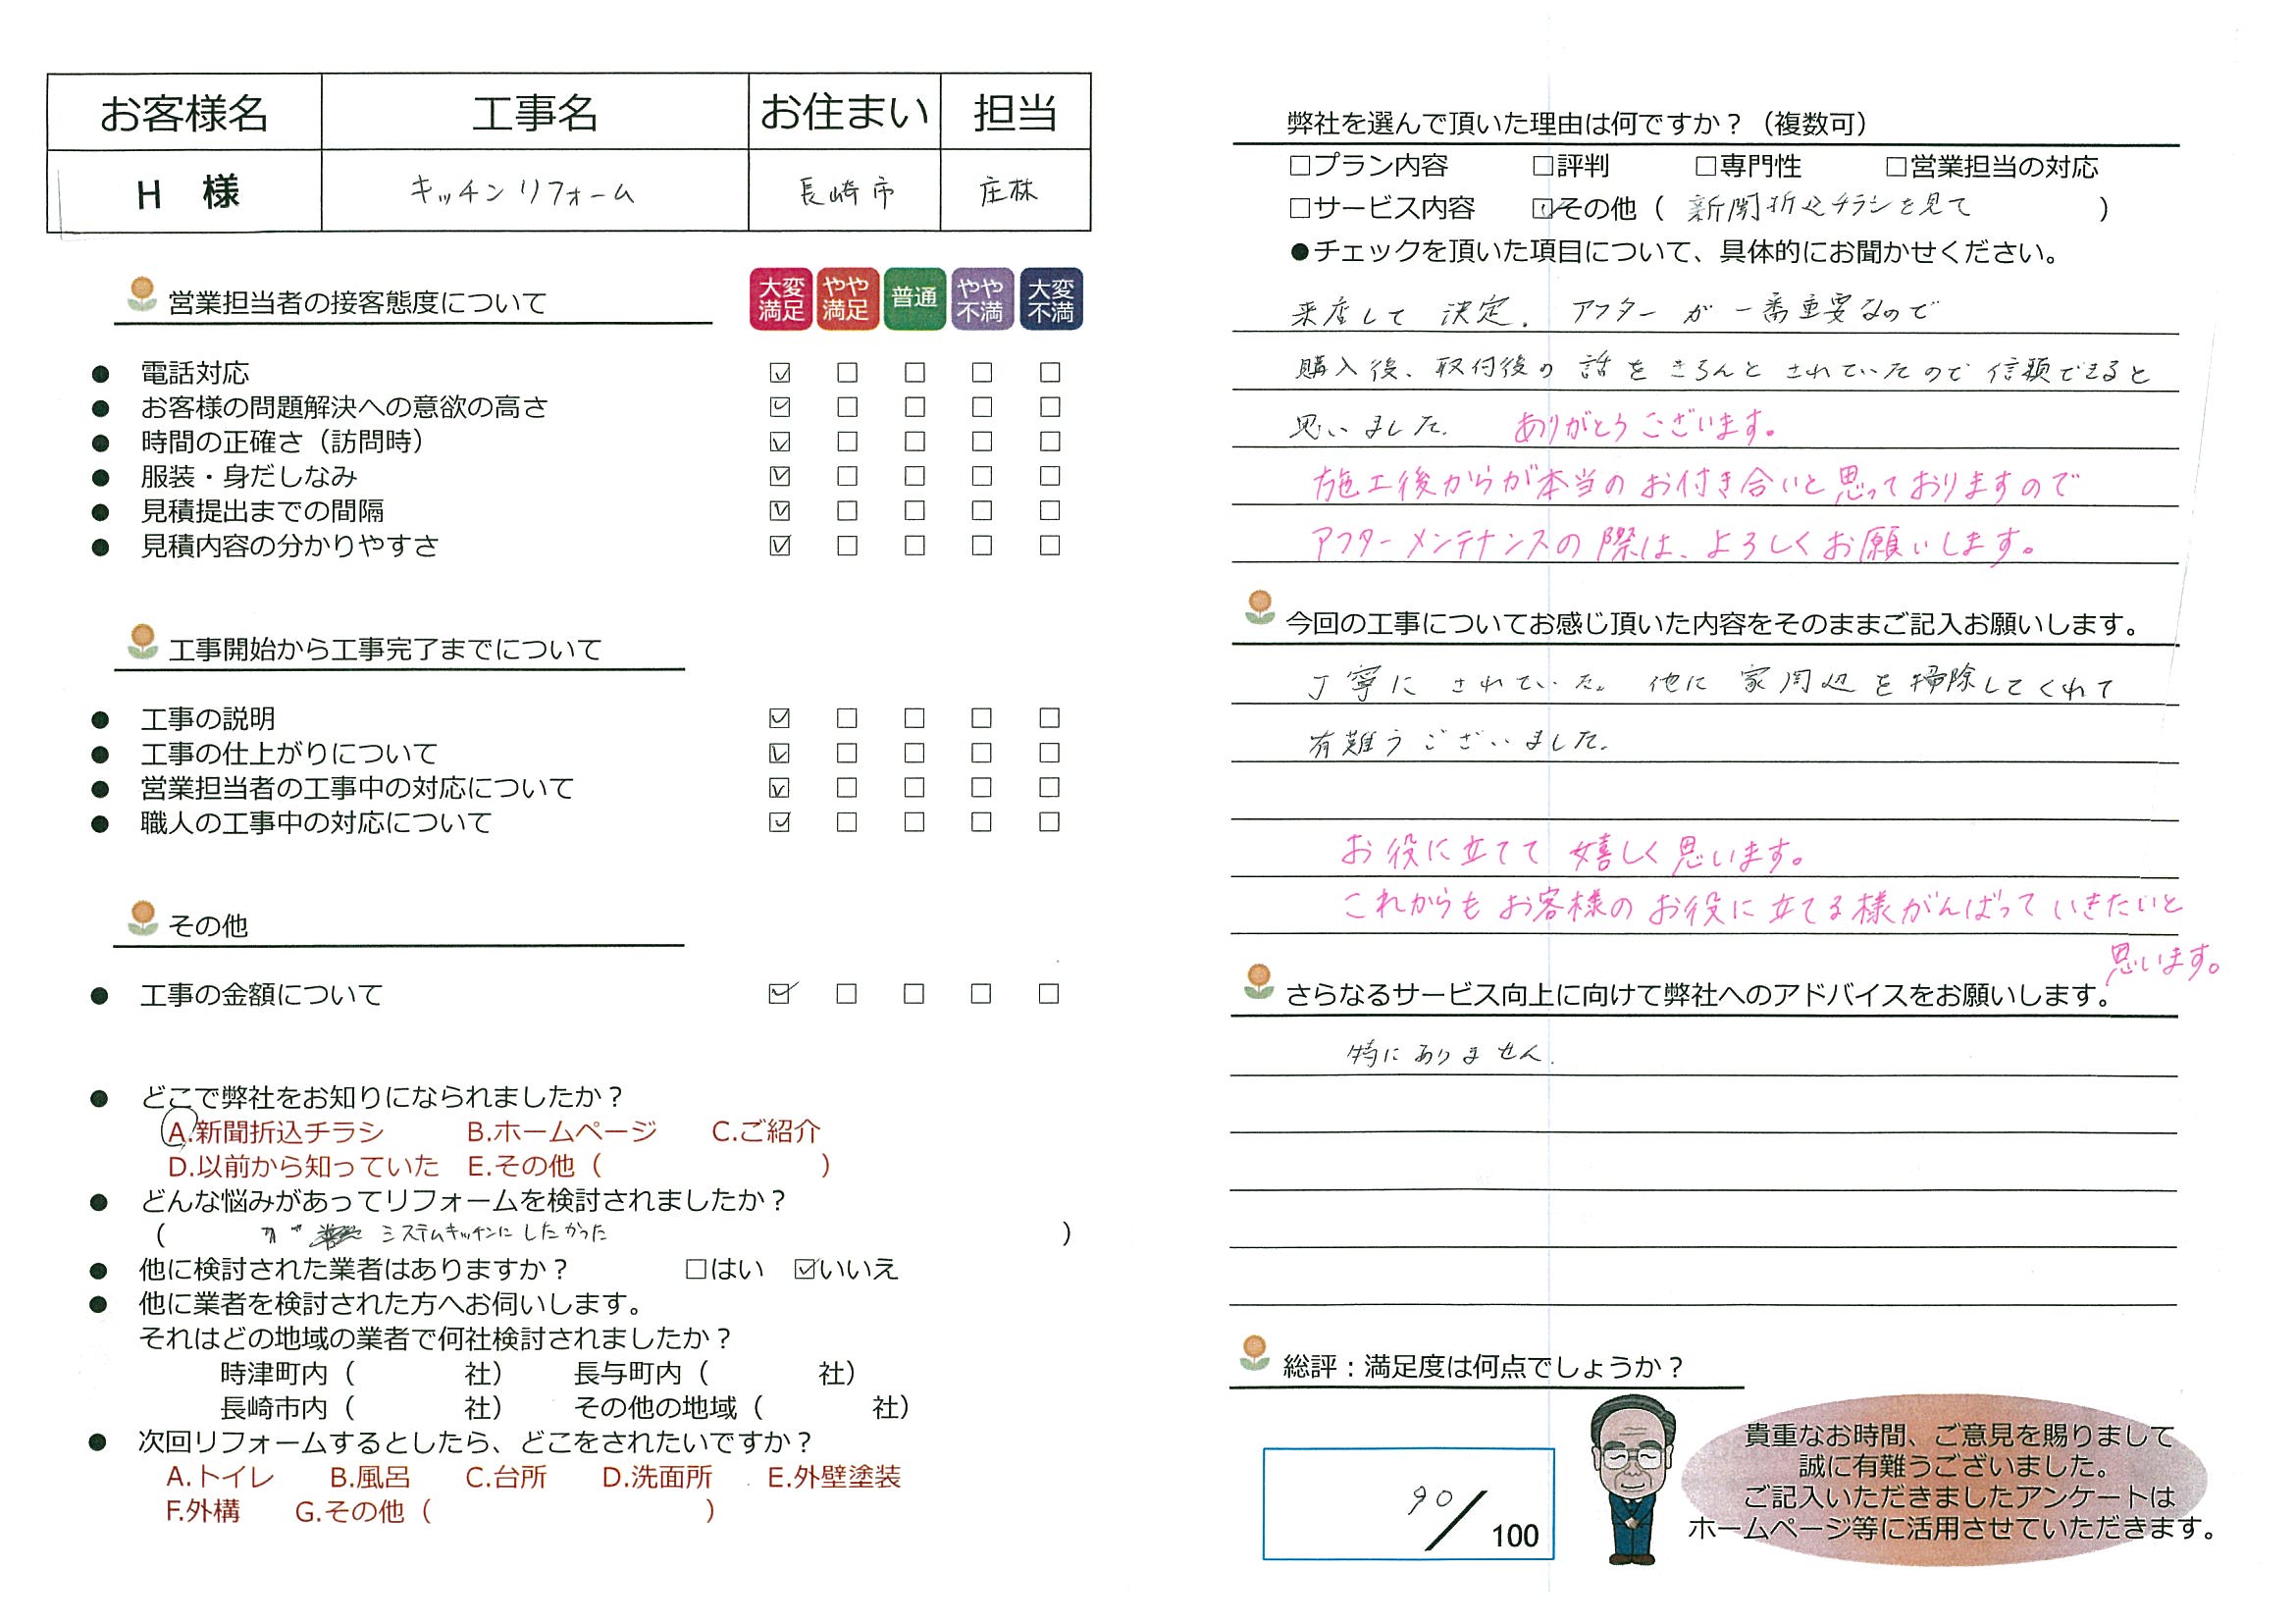 お客様名 工事名 お住まい 担当
H 様 キッチンリフォーム 長崎市 庄林
営業担当者の接客態度について
大変満足 やや満足 普通 やや不満 大変不満
● 電話対応 ☑ □ □ □ □
● お客様の問題解決への意欲の高さ ☑ □ □ □ □
● 時間の正確さ（訪問時） ☑ □ □ □ □
● 服装・身だしなみ ☑ □ □ □ □
● 見積提出までの間隔 ☑ □ □ □ □
● 見積内容の分かりやすさ ☑ □ □ □ □
工事開始から工事完了までについて
● 工事の説明 ☑ □ □ □ □
● 工事の仕上がりについて ☑ □ □ □ □
● 営業担当者の工事中の対応について ☑ □ □ □ □
● 職人の工事中の対応について ☑ □ □ □ □
その他
● 工事の金額について ☑ □ □ □ □
● どこで弊社をお知りになられましたか？
A.新聞折込チラシ B.ホームページ C.ご紹介
D.以前から知っていた E.その他（ ）
● どんな悩みがあってリフォームを検討されましたか？
（ システムキッチンにしたかった ）
● 他に検討された業者はありますか？ □はい ☑いいえ
● 他に業者を検討された方へお伺いします。
それはどの地域の業者で何社検討されましたか？
時津町内（ 社） 長与町内（ 社）
長崎市内（ 社） その他の地域（ 社）
● 次回リフォームするとしたら、どこをされたいですか？
A.トイレ B.風呂 C.台所 D.洗面所 E.外壁塗装
F.外構 G.その他（ ）
弊社を選んで頂いた理由は何ですか？（複数可）
□プラン内容 □評判 □専門性 □営業担当の対応
□サービス内容 ☑その他（ 新聞折込チラシを見て ）
●チェックを頂いた項目について、具体的にお聞かせください。
来店して 決定. アフターが一番重要なので
購入後、取付後の話をきちんとされていたので信頼できると
思いました. ありがとうございます。
施工後からが本当のお付き合いと思っておりますので
アフターメンテナンスの際は、よろしくお願いします。
今回の工事についてお感じ頂いた内容をそのままご記入お願いします。
丁寧にされていた。他に家周辺を掃除してくれて
有難うございました.
お役に立てて嬉しく思います。
これからもお客様のお役に立てる様がんばっていきたいと
思います。
さらなるサービス向上に向けて弊社へのアドバイスをお願いします。
特にありません.
総評：満足度は何点でしょうか？
90/100
貴重なお時間、ご意見を賜りまして
誠に有難うございました。
ご記入いただきましたアンケートは
ホームページ等に活用させていただきます。